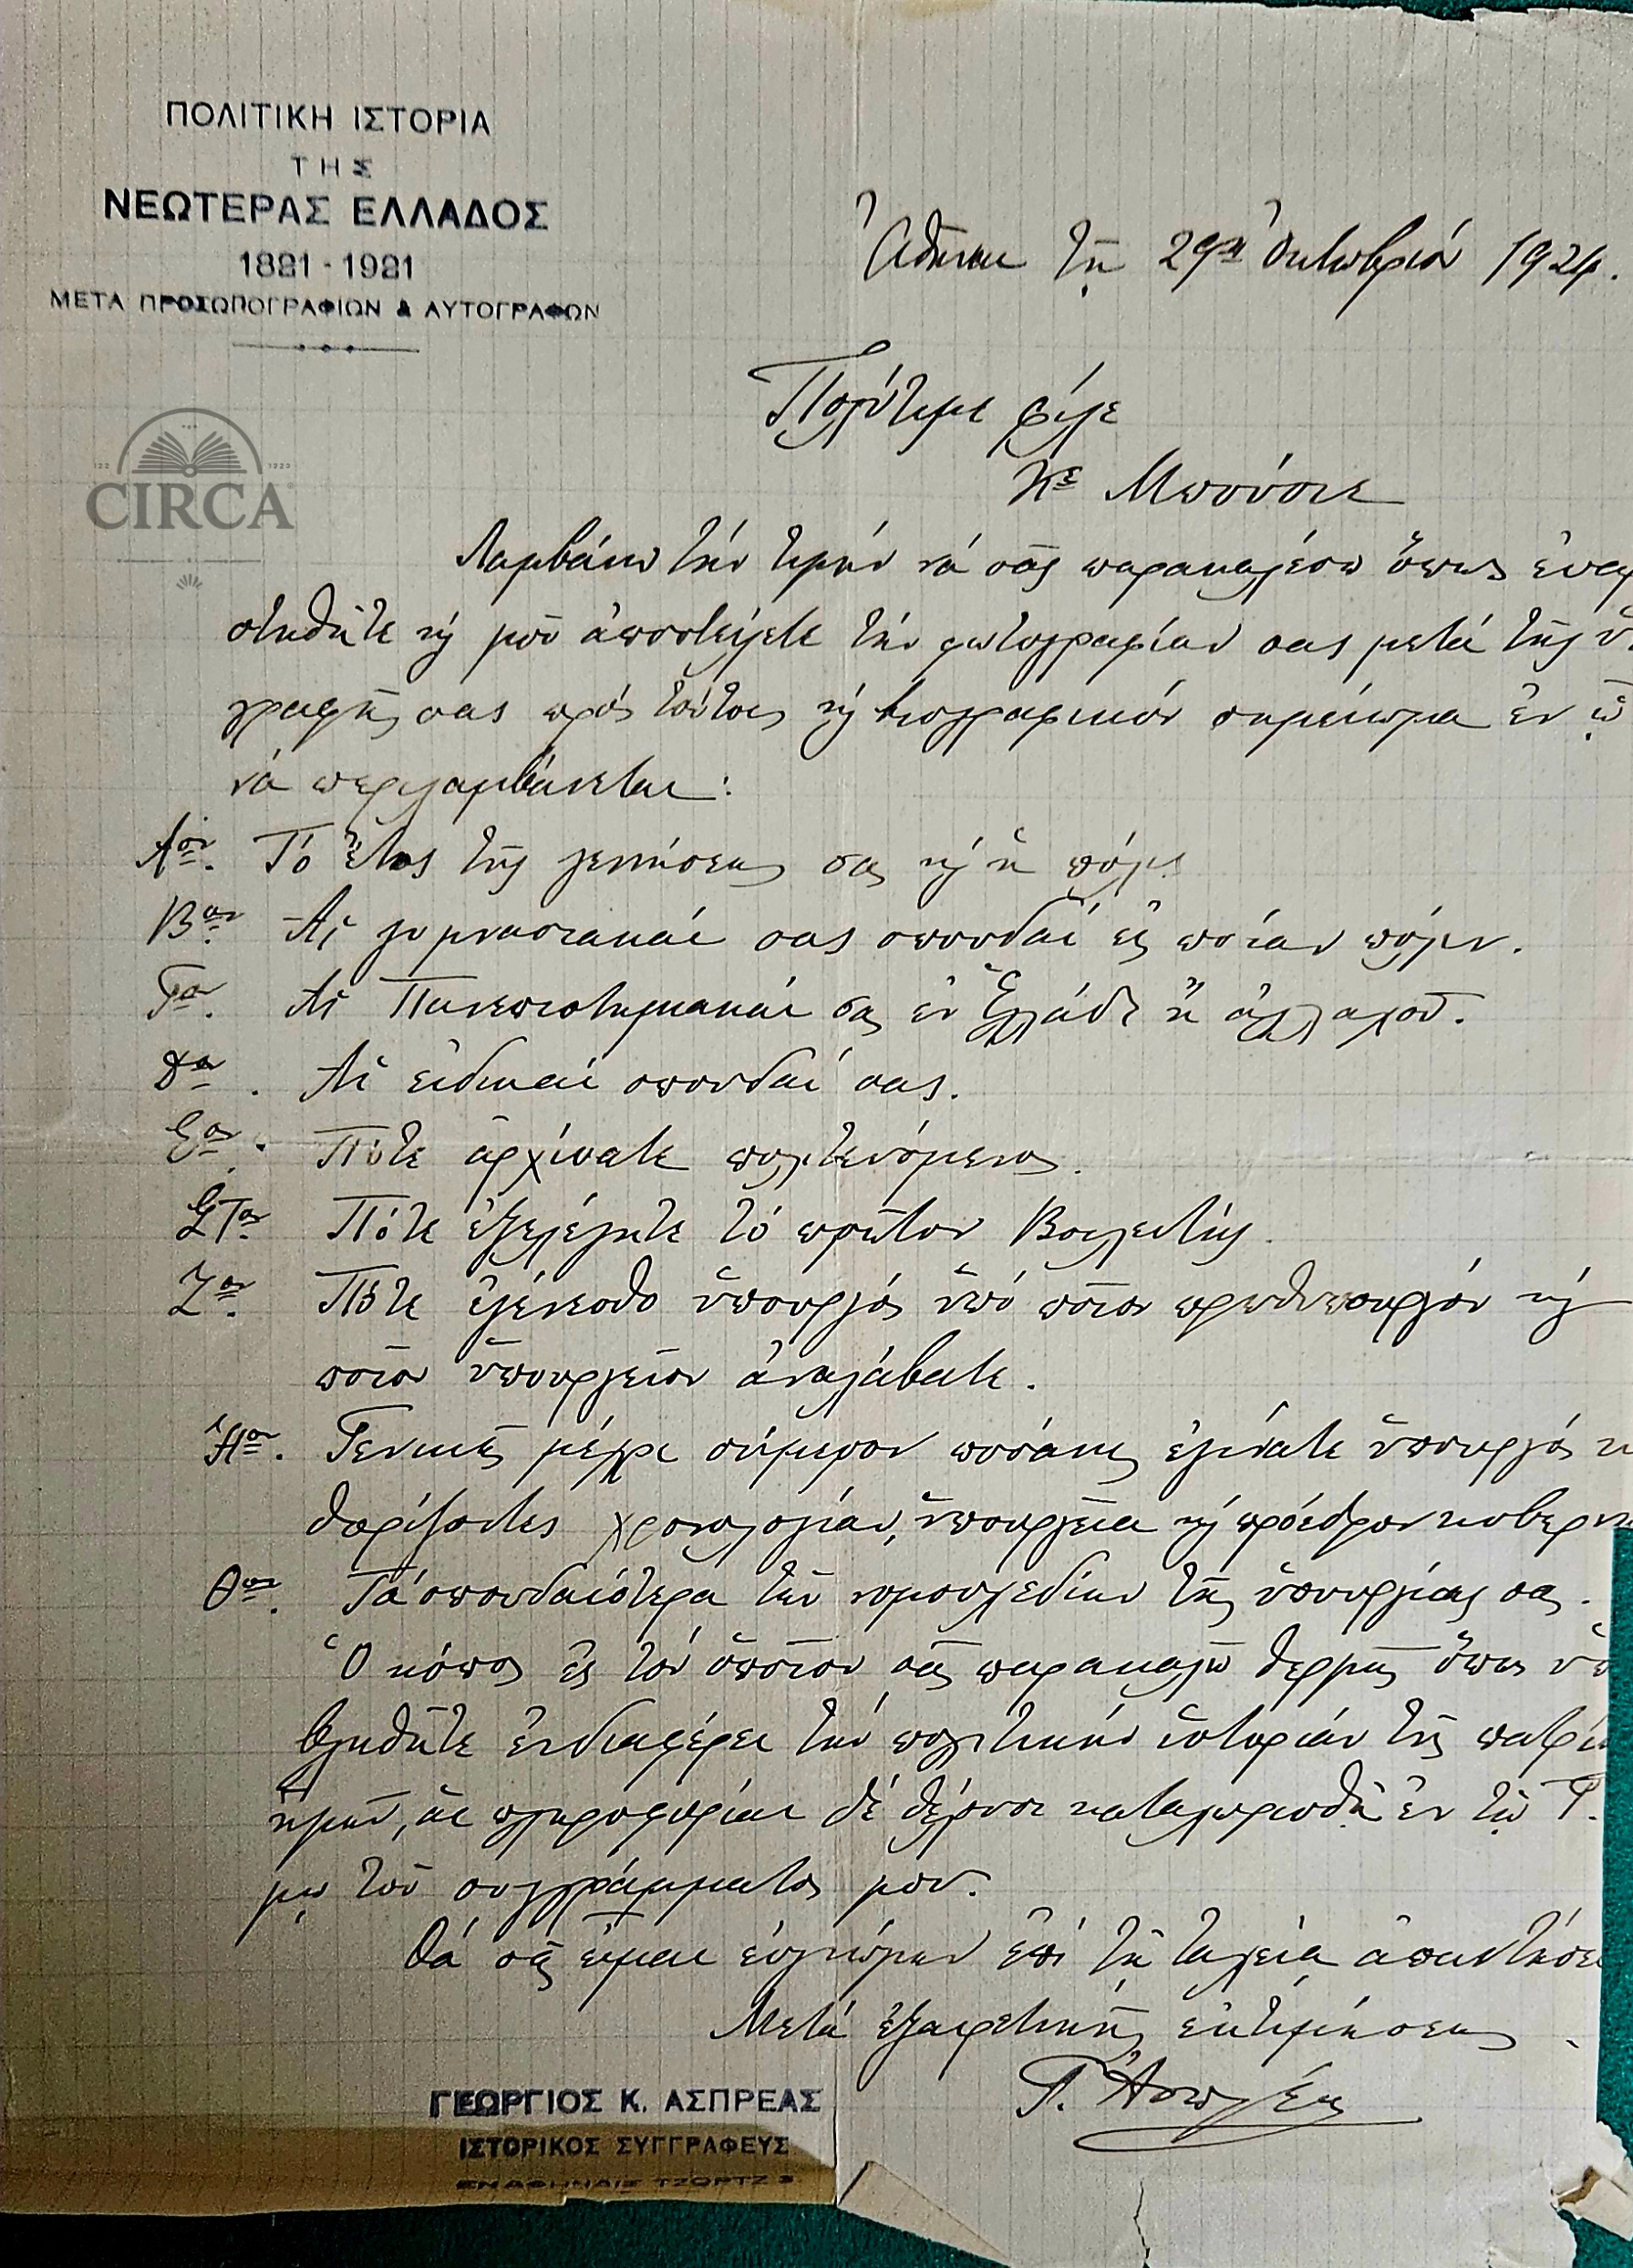 ΠΟΛΙΤΙΚΗ ΙΣΤΟΡΙΑ
ΤΗΣ
ΝΕΩΤΕΡΑΣ ΕΛΛΑΔΟΣ
1821 - 1921
ΜΕΤΑ ΠΡΟΣΩΠΟΓΡΑΦΙΩΝ & ΑΥΤΟΓΡΑΦΩΝ
Ἀθῆναι τῇ 29ῃ Ὀκτωβρίου 1924.
Πολύτιμε φίλε
Κε Μπούσιε
CIRCA
Λαμβάνω τήν τιμήν νά σᾶς παρακαλέσω ὅπως εὐαρ
στηθῆτε καί μοῦ ἀποστείλετε τήν φωτογραφίαν σας μετά τῆς ὑ
γραφῆς σας πρός τούτοις καί βιογραφικόν σημείωμα ἐν ᾧ
νά περιλαμβάνεται:
Αον. Τό ἔτος τῆς γεννήσεως σας καί ἡ πόλις
Βον. Αἱ γυμνασιακαί σας σπουδαί εἰς ποίαν πόλιν.
Γον. Αἱ Πανεπιστημιακαί σας ἐν Ἑλλάδι ἤ ἀλλαχοῦ.
Δον. Αἱ εἰδικαί σπουδαί σας.
Εον. Πότε ἀρχίσατε πολιτευόμενος.
ΣΤον Πότε ἐξελέγητε τό πρῶτον Βουλευτής.
Ζον. Πότε ἐγένεσθο ὑπουργός ὑπό ποῖον πρωθυπουργόν καί
ποῖον ὑπουργεῖον ἀναλάβατε.
Ηον. Γενικῶς μέχρι σήμερον ποσάκις ἐγίνατε ὑπουργός κα
θορίζοντες χρονολογίαν, ὑπουργεῖα καί πρόεδρον κυβερνή
Θον. Τά σπουδαιότερα τῶν νομοσχεδίων τῆς ὑπουργίας σας.
Ὁ κόπος εἰς τόν ὁποῖον σᾶς παρακαλῶ θερμῶς ὅπως ὑπο
βληθῆτε ἐνδιαφέρει τήν πολιτικήν ἱστορίαν τῆς πατρί
ἡμῶν, αἱ πληροφορίαι δέ θέλουσι καταχωρισθῆ ἐν τῷ Γ.
μῳ τοῦ συγγράμματός μου.
Θά σᾶς εἶμαι εὐγνώμων ἐπί τῇ ταχείᾳ ἀπαντήσει
Μετά ἐξαιρετικῆς ἐκτιμήσεως
Γ. Ἀσπρέας
ΓΕΩΡΓΙΟΣ Κ. ΑΣΠΡΕΑΣ
ΙΣΤΟΡΙΚΟΣ ΣΥΓΓΡΑΦΕΥΣ
ΕΝ ΑΘΗΝΑΙΣ ΤΖΩΡΤΖ 3